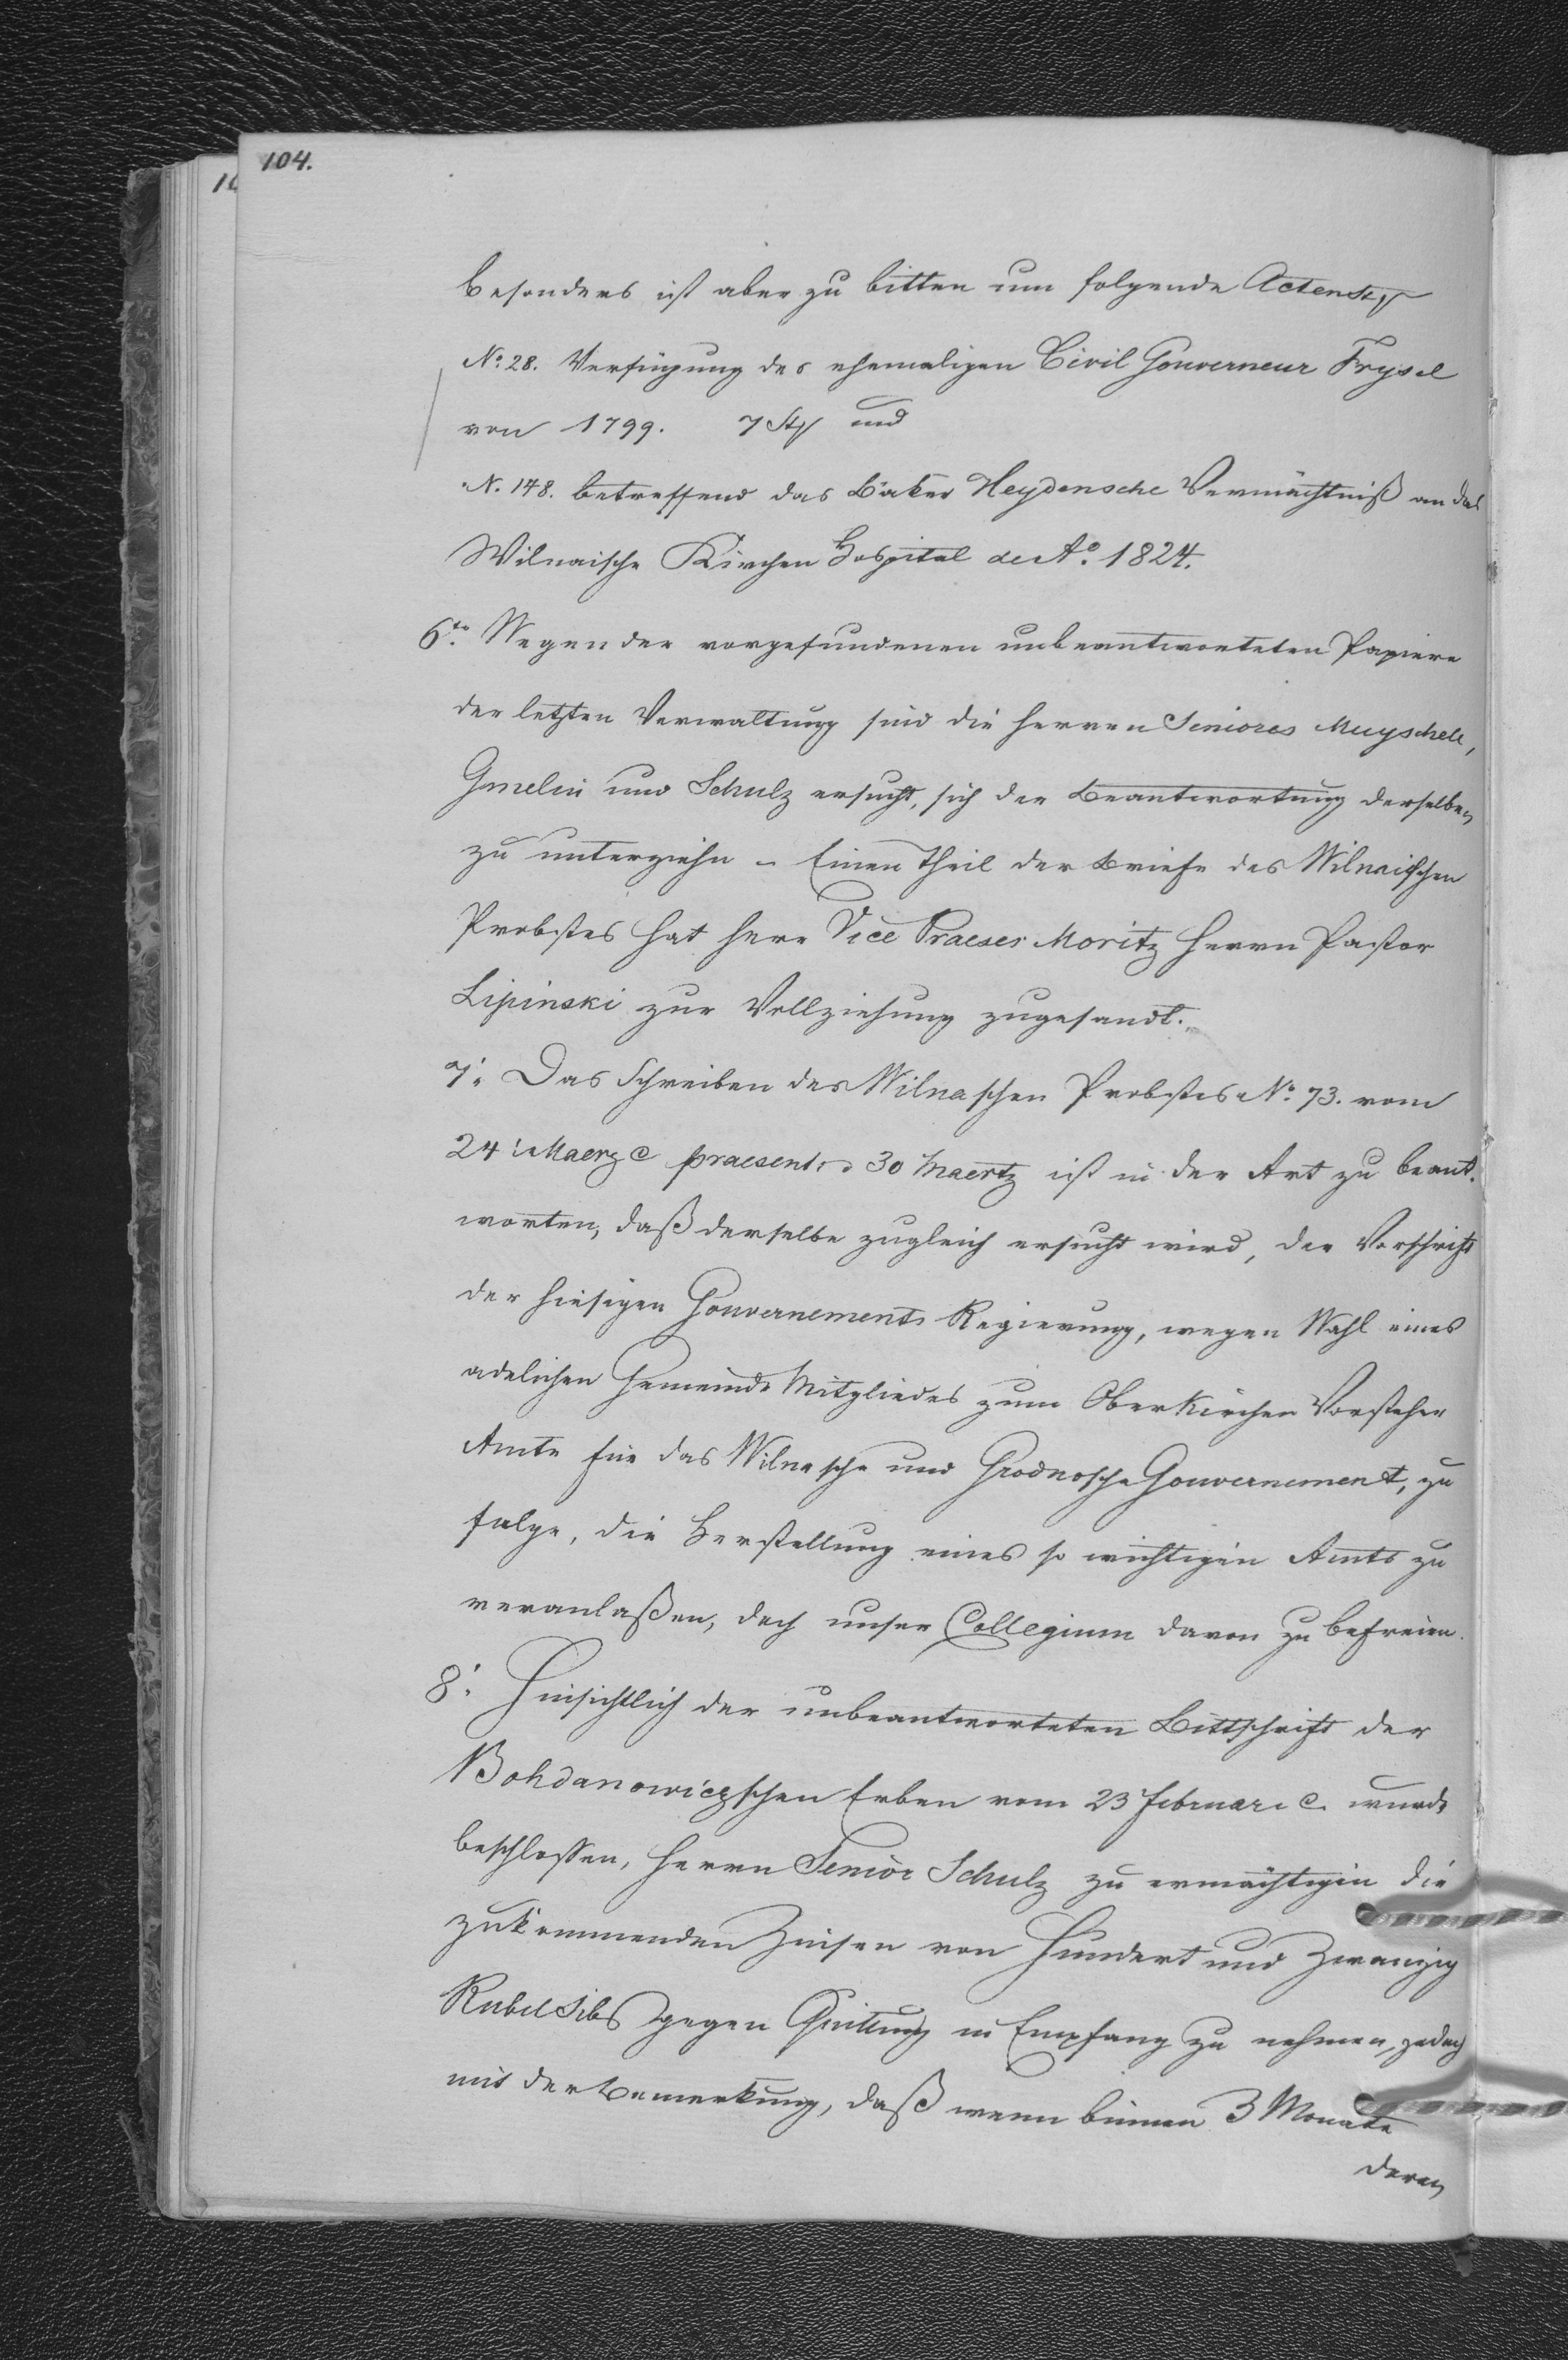 104.
Besonders ist aber zu bitten um folgende Actenst
No. 28. Verfügung des ehemaligen Civil Gouverneur Frysel
von 1799. 7 St und
N. 148. betreffend das Bäker Heydensche Vermächtniß an das
Wilnaische Kirchen Hospital de Ao. 1824.
6to. Wegen der vorgefundenen unbeantworteten Papiere
der letzten Verwaltung sind die Herren Seniores Muyschel,
Gmelin und Schulz ersucht, sich der Beantwortung derselben
zu unterziehn - Einen Theil der Briefe des Wilnaischen
Probstes hat Herr Vice Praeses Moritz Herrn Pastor
Lipinski zur Vollziehung zugesandt.
7. Das Schreiben des Wilnaschen Probstes No. 73. vom
24. Maerz c praesent: 30 Maertz ist in der Art zu beant.
worten, daß derselbe zugleich ersucht wird, der Vorschrift
der hiesigen Gouvernements Regierung, wegen Wahl eines
adelichen Gemeinde Mitgliedes zum Oberkirchen Vorsteher
Amte für das Wilnasche und Grodnosche Gouvernement, zu
folge, die Herstellung eines so wichtigen Amts zu
veranlaßen, doch unser Collegium davon zu befreien.
8. Hinsichtlich der unbeantworteten Bittschrift der
Bohdanowiczschen Erben vom 23 Februar c. wurde
beschlossen, Herrn Senior Schulz zu ermächtigen die
zukommenden Zinsen von Hundert und Zwanzig
Rubel Silb gegen Quittung in Empfang zu nehmen, jedoch
mit der Bemerkung, daß wenn binnen 3 Monate
deren